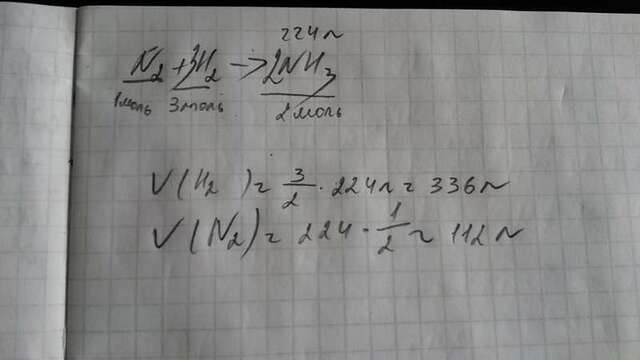 224л
N₂ + 3H₂ → 2NH₃
1моль 3моль 2моль
V(H₂) = 3/2 · 224л = 336л
V(N₂) = 224 · 1/2 = 112л